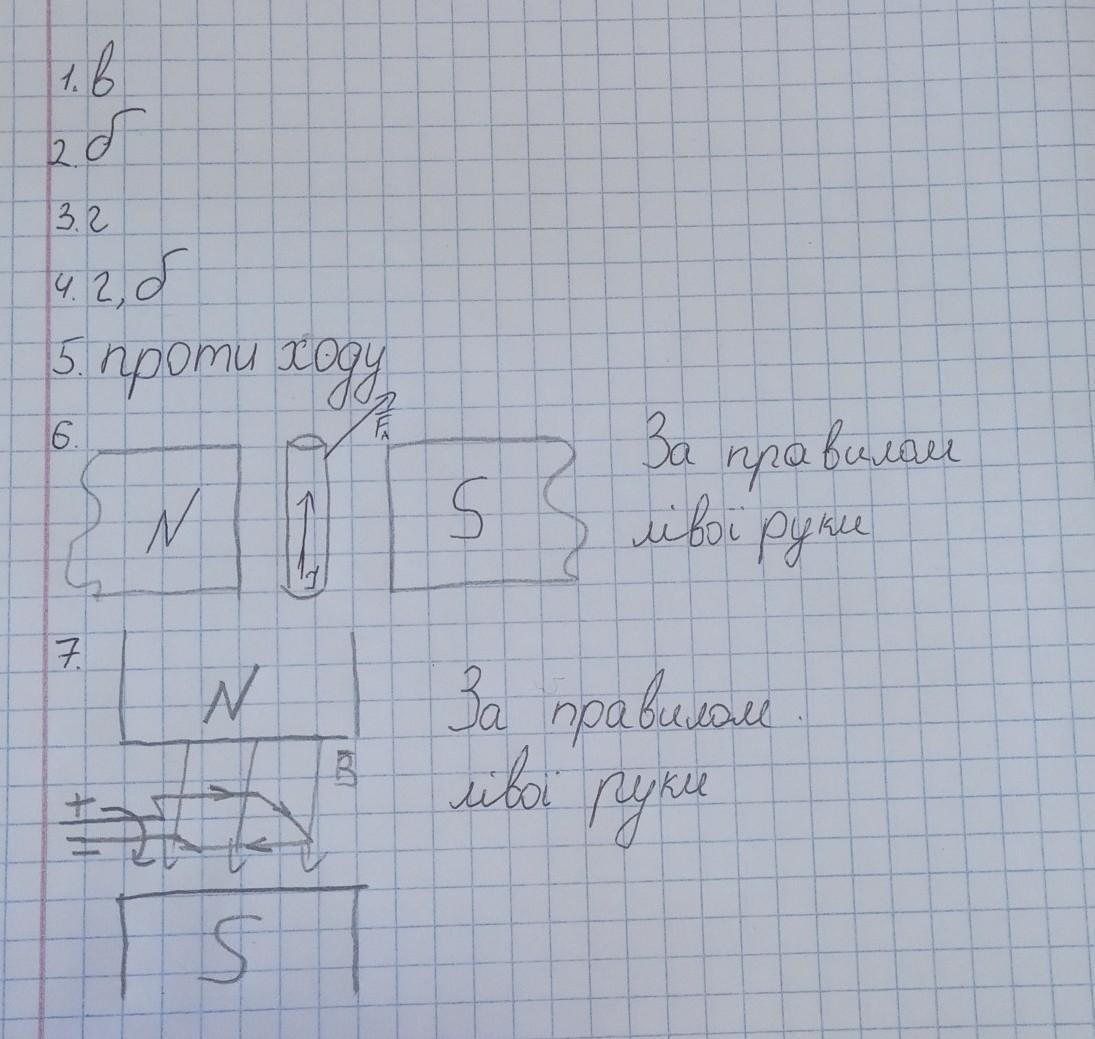 1. в
2. б
3. г
4. г, б
5. проти ходу
6.
N
I
F_A
S
За правилом
лівої руки
7.
N
B
+
=
S
За правилом.
лівої руки